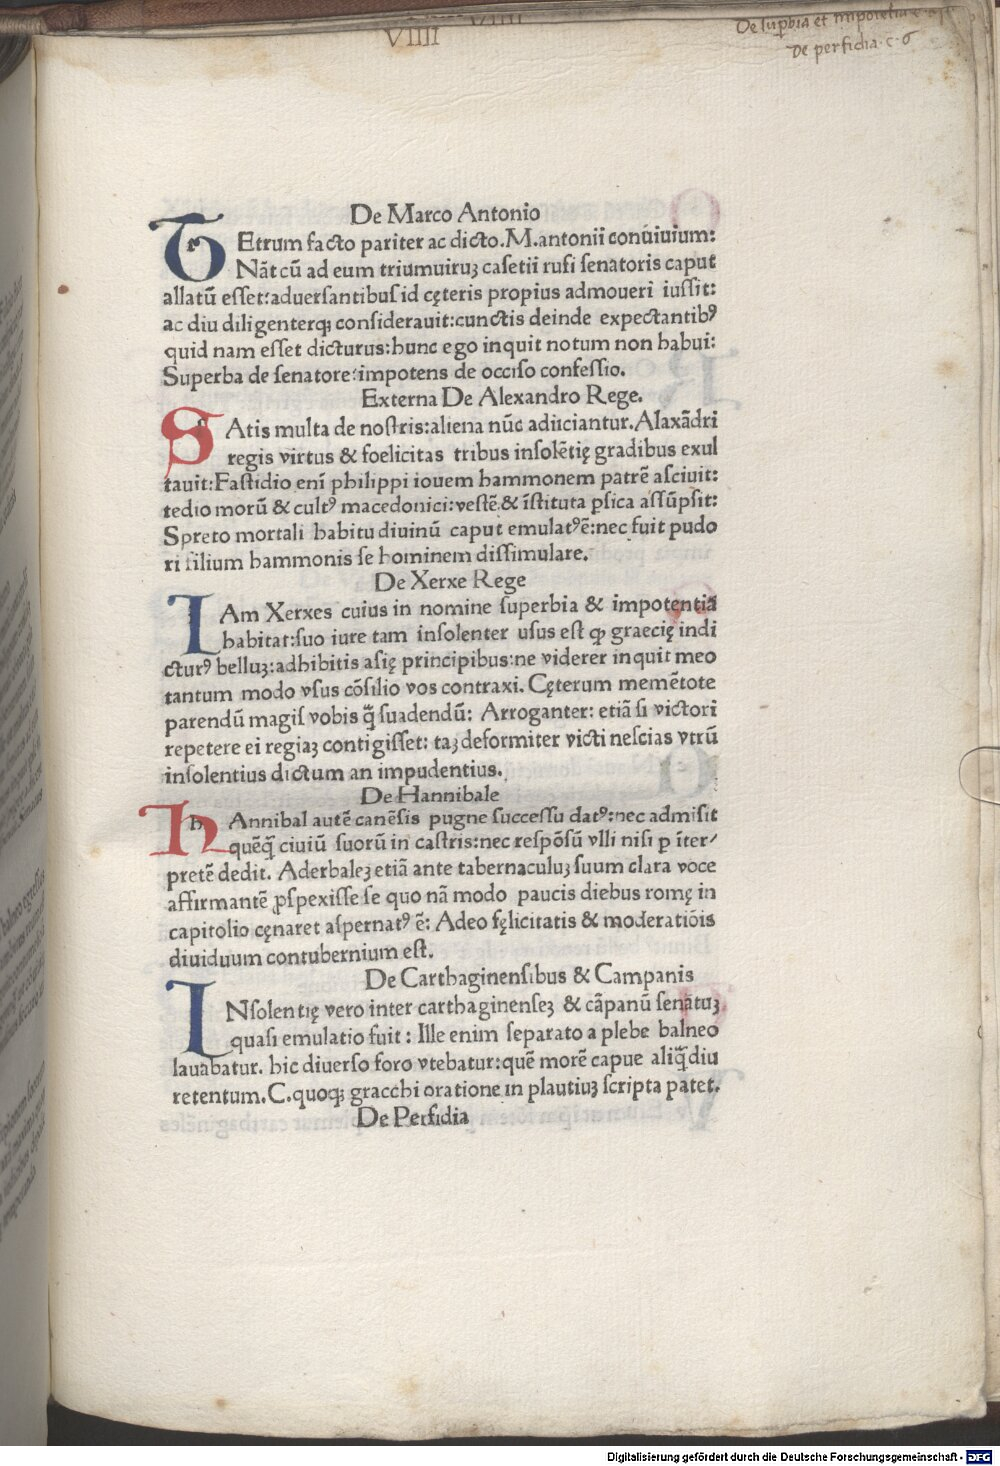 VIIII
De suꝑbia et impotentia
De perfidia·c·6
De Marco Antonio
TEtrum facto pariter ac dicto.M.antonii conuiuium:
Nãt cũ ad eum triumuiruꝫ casetii rufi senatoris caput
allatũ esset:aduersantibus id cęteris propius admoueri iussit:
ac diu diligenterqꝫ considerauit:cunctis deinde expectantibꝰ
quid nam esset dicturus:hunc ego inquit notum non habui:
Superba de senatore:impotens de occiso confessio.
Externa De Alexandro Rege.
SAtis multa de nostris:aliena nũc adiiciantur.Alaxãdri
regis virtus & foelicitas tribus insolẽtię gradibus exul
tauit:Fastidio enĩ philippi iouem hammonem patrẽ asciuit:
tedio morũ & cultꝰ macedonici:vestẽ & ĩstituta ꝑsica assũpsit:
Spreto mortali habitu diuinũ caput emulatꝰ ẽ:nec fuit pudo
ri filium hammonis se hominem dissimulare.
De Xerxe Rege
IAm Xerxes cuius in nomine superbia & impotentia
habitat:suo iure tam insolenter usus est ꝙ graecię indi
cturꝰ belluꝫ:adhibitis asię principibus:ne viderer inquit meo
tantum modo vsus cõsilio vos contraxi. Cęterum memẽtote
parendũ magis vobis q̃ suadendũ: Arroganter: etiã si victori
repetere ei regiaꝫ contigisset: taꝫ deformiter victi nescias vtrũ
insolentius dictum an impudentius.
De Hannibale
HAnnibal autẽ canẽsis pugne successu datꝰ:nec admisit
quẽq̃ ciuiũ suorũ in castris:nec respõsũ vlli nisi ꝑ ĩter/
pretẽ dedit. Aderbaleꝫ etiã ante tabernaculuꝫ suum clara voce
affirmantẽ ꝓspexisse se quo nã modo paucis diebus romę in
capitolio cęnaret aspernatꝰ ẽ: Adeo fęlicitatis & moderatiõis
diuiduum contubernium est.
De Carthaginensibus & Campanis
INsolentię vero inter carthaginenseꝫ & cãpanũ senatuꝫ
quasi emulatio fuit: Ille enim separato a plebe balneo
lauabatur. hic diuerso foro vtebatur:quẽ morẽ capue aliq̃diu
retentum.C.quoqꝫ gracchi oratione in plautiuꝫ scripta patet.
De Perfidia
Digitalisierung gefördert durch die Deutsche Forschungsgemeinschaft - DFG